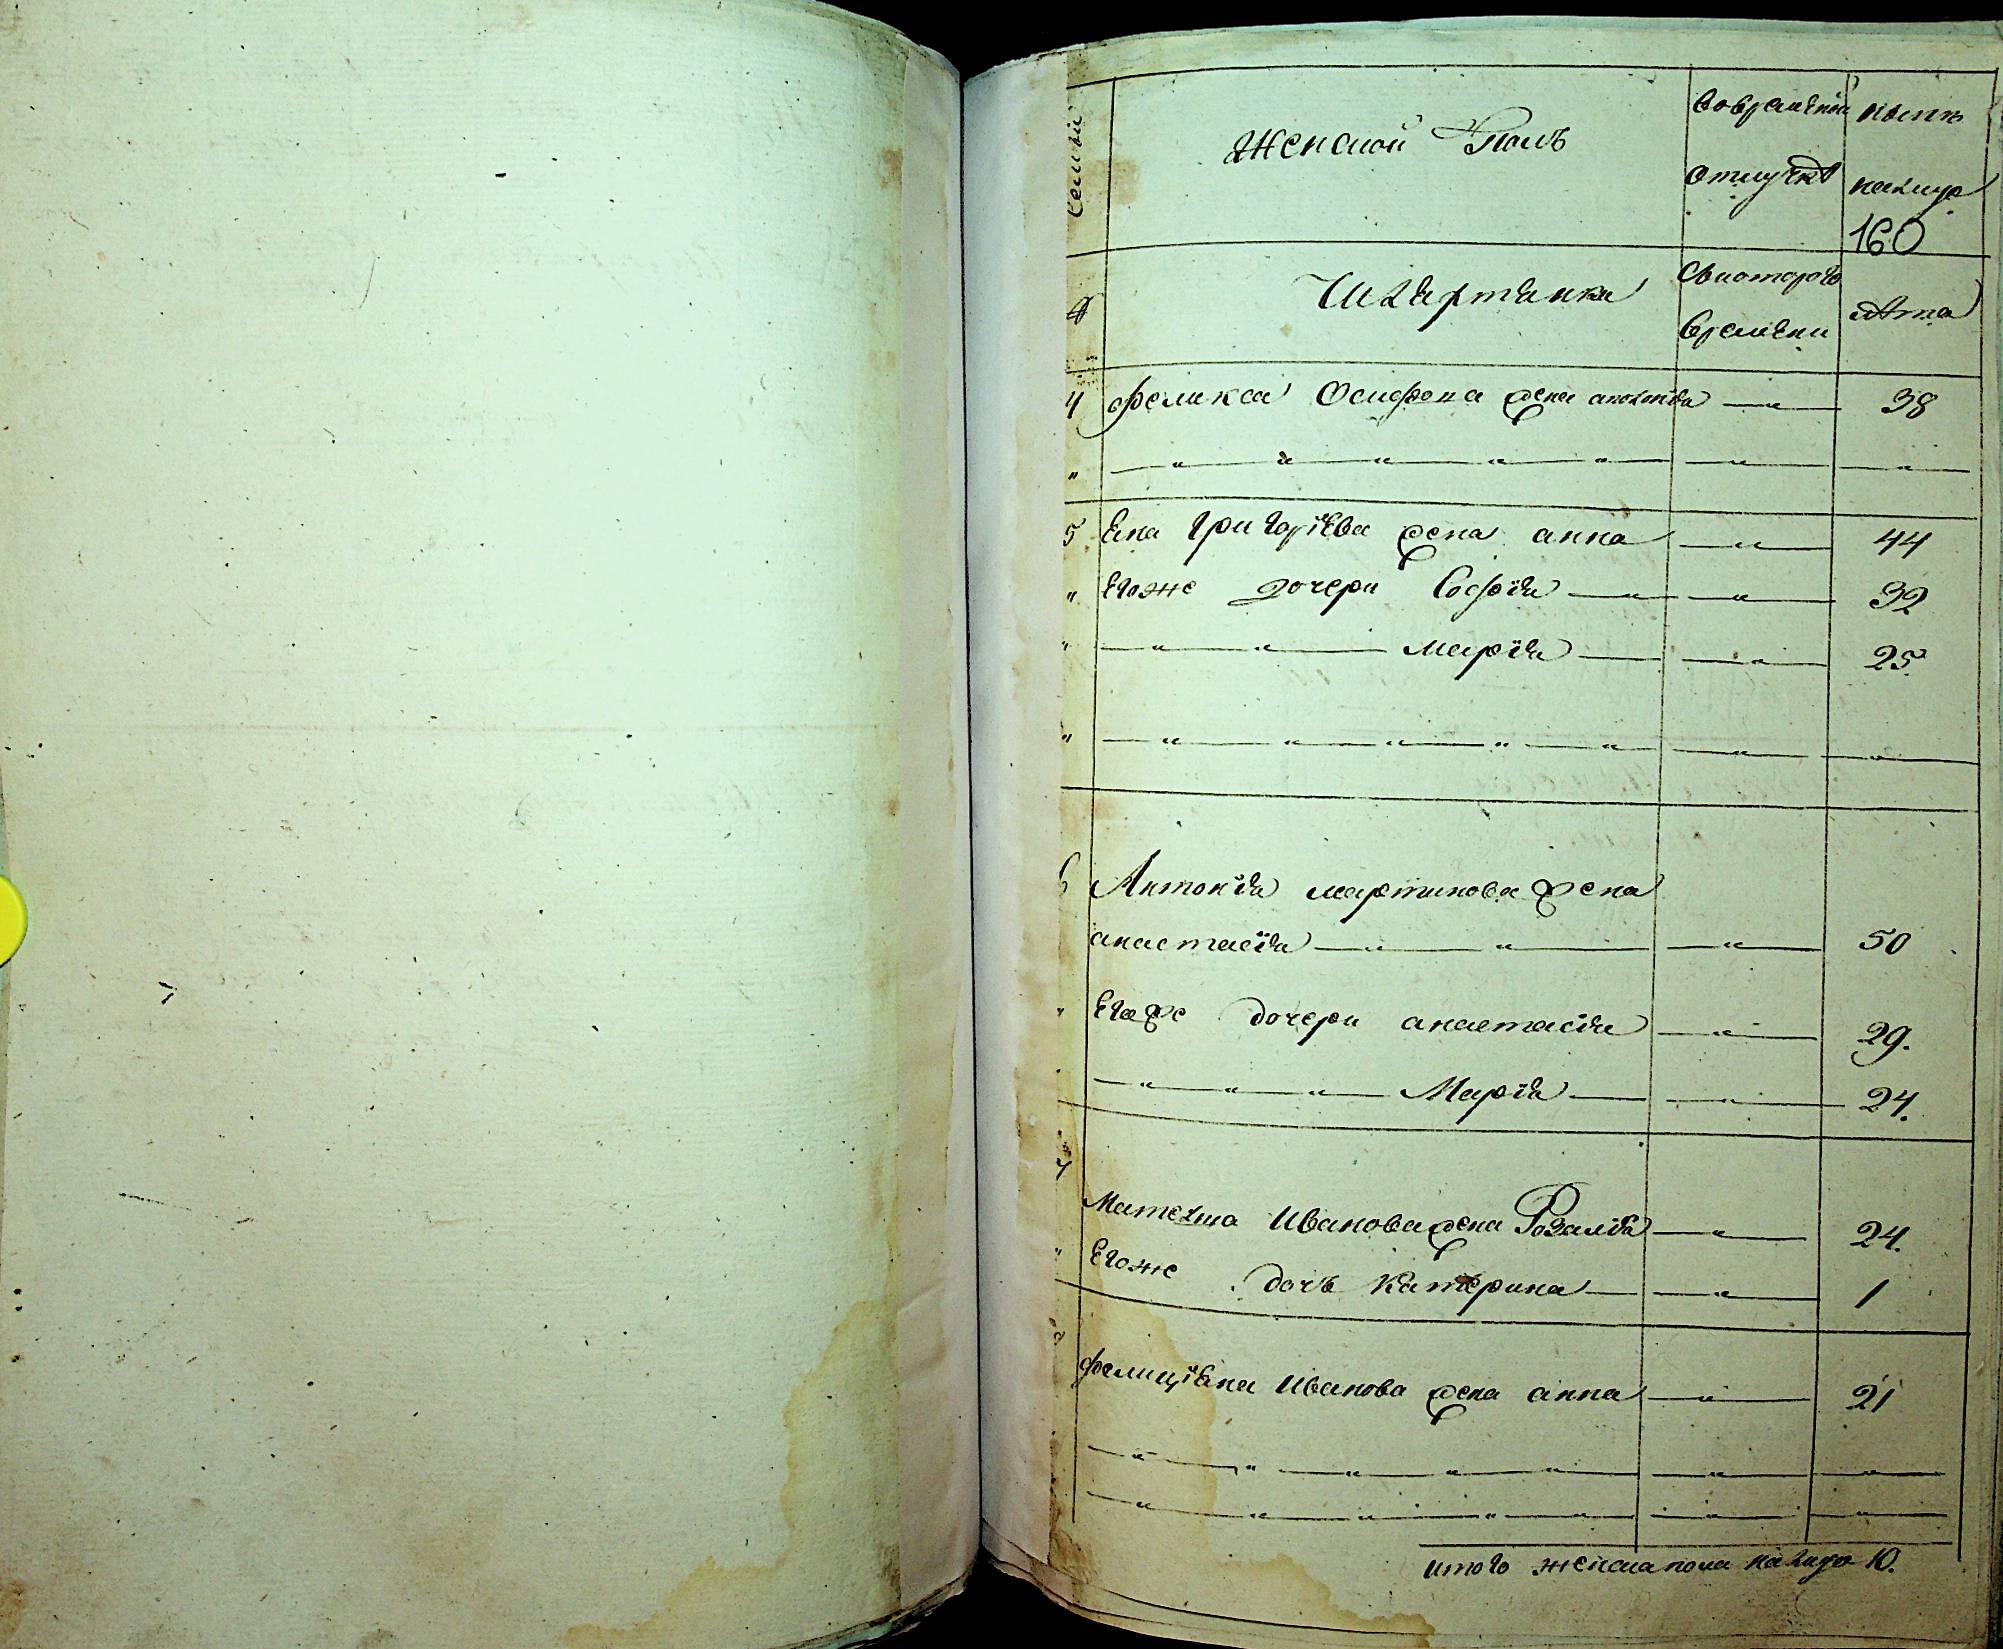 Семьи
Женской Полъ
Вовременной
отлучке
ныне
налицо
160
№
Шляртянки
Скоторого
времени
лета
4 Феликса Осифова жена антониа — „ — 38
„ — „ — „ — „ — „ — „ — „ — „
5 Яна Григориева жена анна — „ — 44
„ Егоже дочери Софиа — „ — „ — 32
„ — „ — „ — мариа — „ — 25
„ — „ — „ — „ — „ — „ — „ — „
6 Антониа мартинова жена
анастасиа — „ — „ — „ — 50
„ Егоже дочери анастасиа — „ — 29.
— „ — „ — „ — Мариа — „ — 24.
7
Матеуша Иванова жена Розалиа — „ — 24.
„ Егоже дочь Катерина — „ — 1
Фелициана Иванова жена анна — „ — 21
— „ — „ — „ — „ — „ — „ — „
— „ — „ — „ — „ — „ — „ — „
итого женска пола налицо 10.